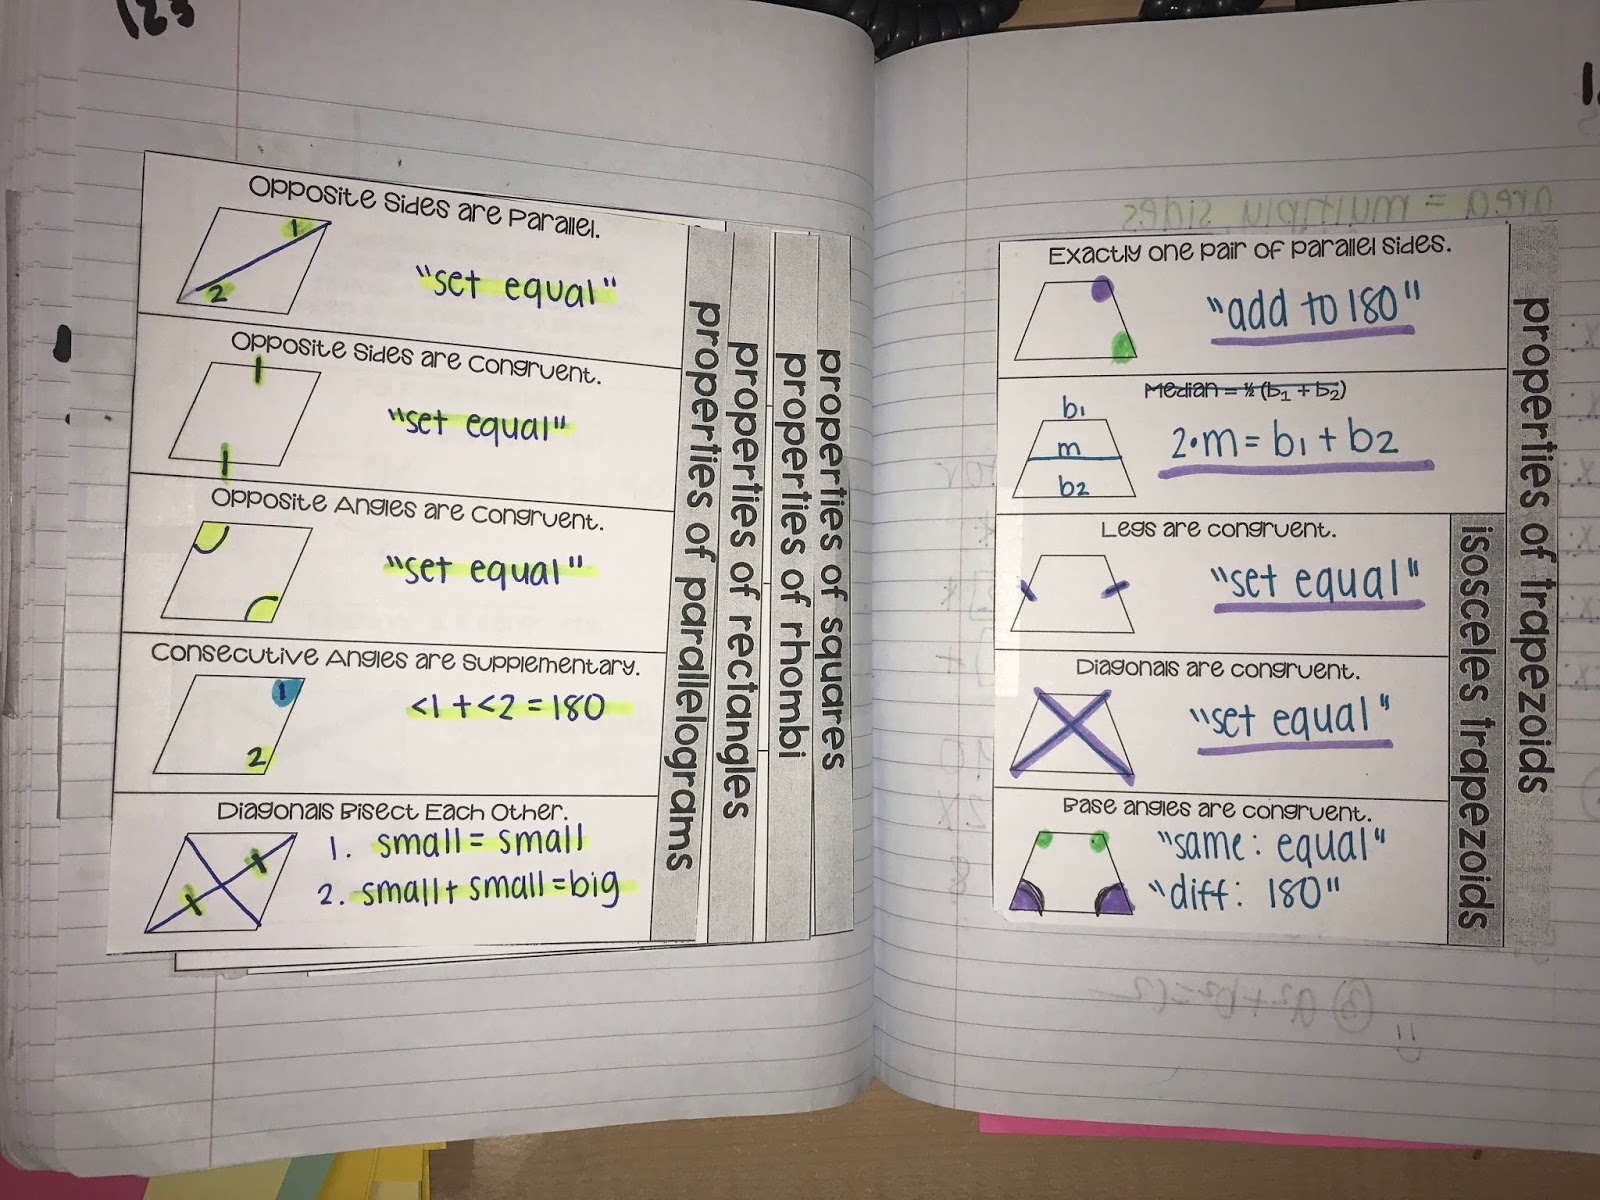 123
Opposite Sides are Parallel.
1
2
"set equal"
Opposite Sides are Congruent.
"set equal"
Opposite Angles are Congruent.
"set equal"
Consecutive Angles are Supplementary.
1
2
<1 + <2 = 180
Diagonals Bisect Each Other.
1. small = small
2. small + small = big
properties of parallelograms
properties of rectangles
properties of rhombi
properties of squares
area = multiply sides
Exactly one pair of parallel sides.
"add to 180"
Median = ½ (b₁ + b₂)
b1
m
b2
2•m = b1 + b2
Legs are congruent.
"set equal"
Diagonals are congruent.
"set equal"
Base angles are congruent.
"same: equal"
"diff: 180"
isosceles trapezoids
properties of trapezoids